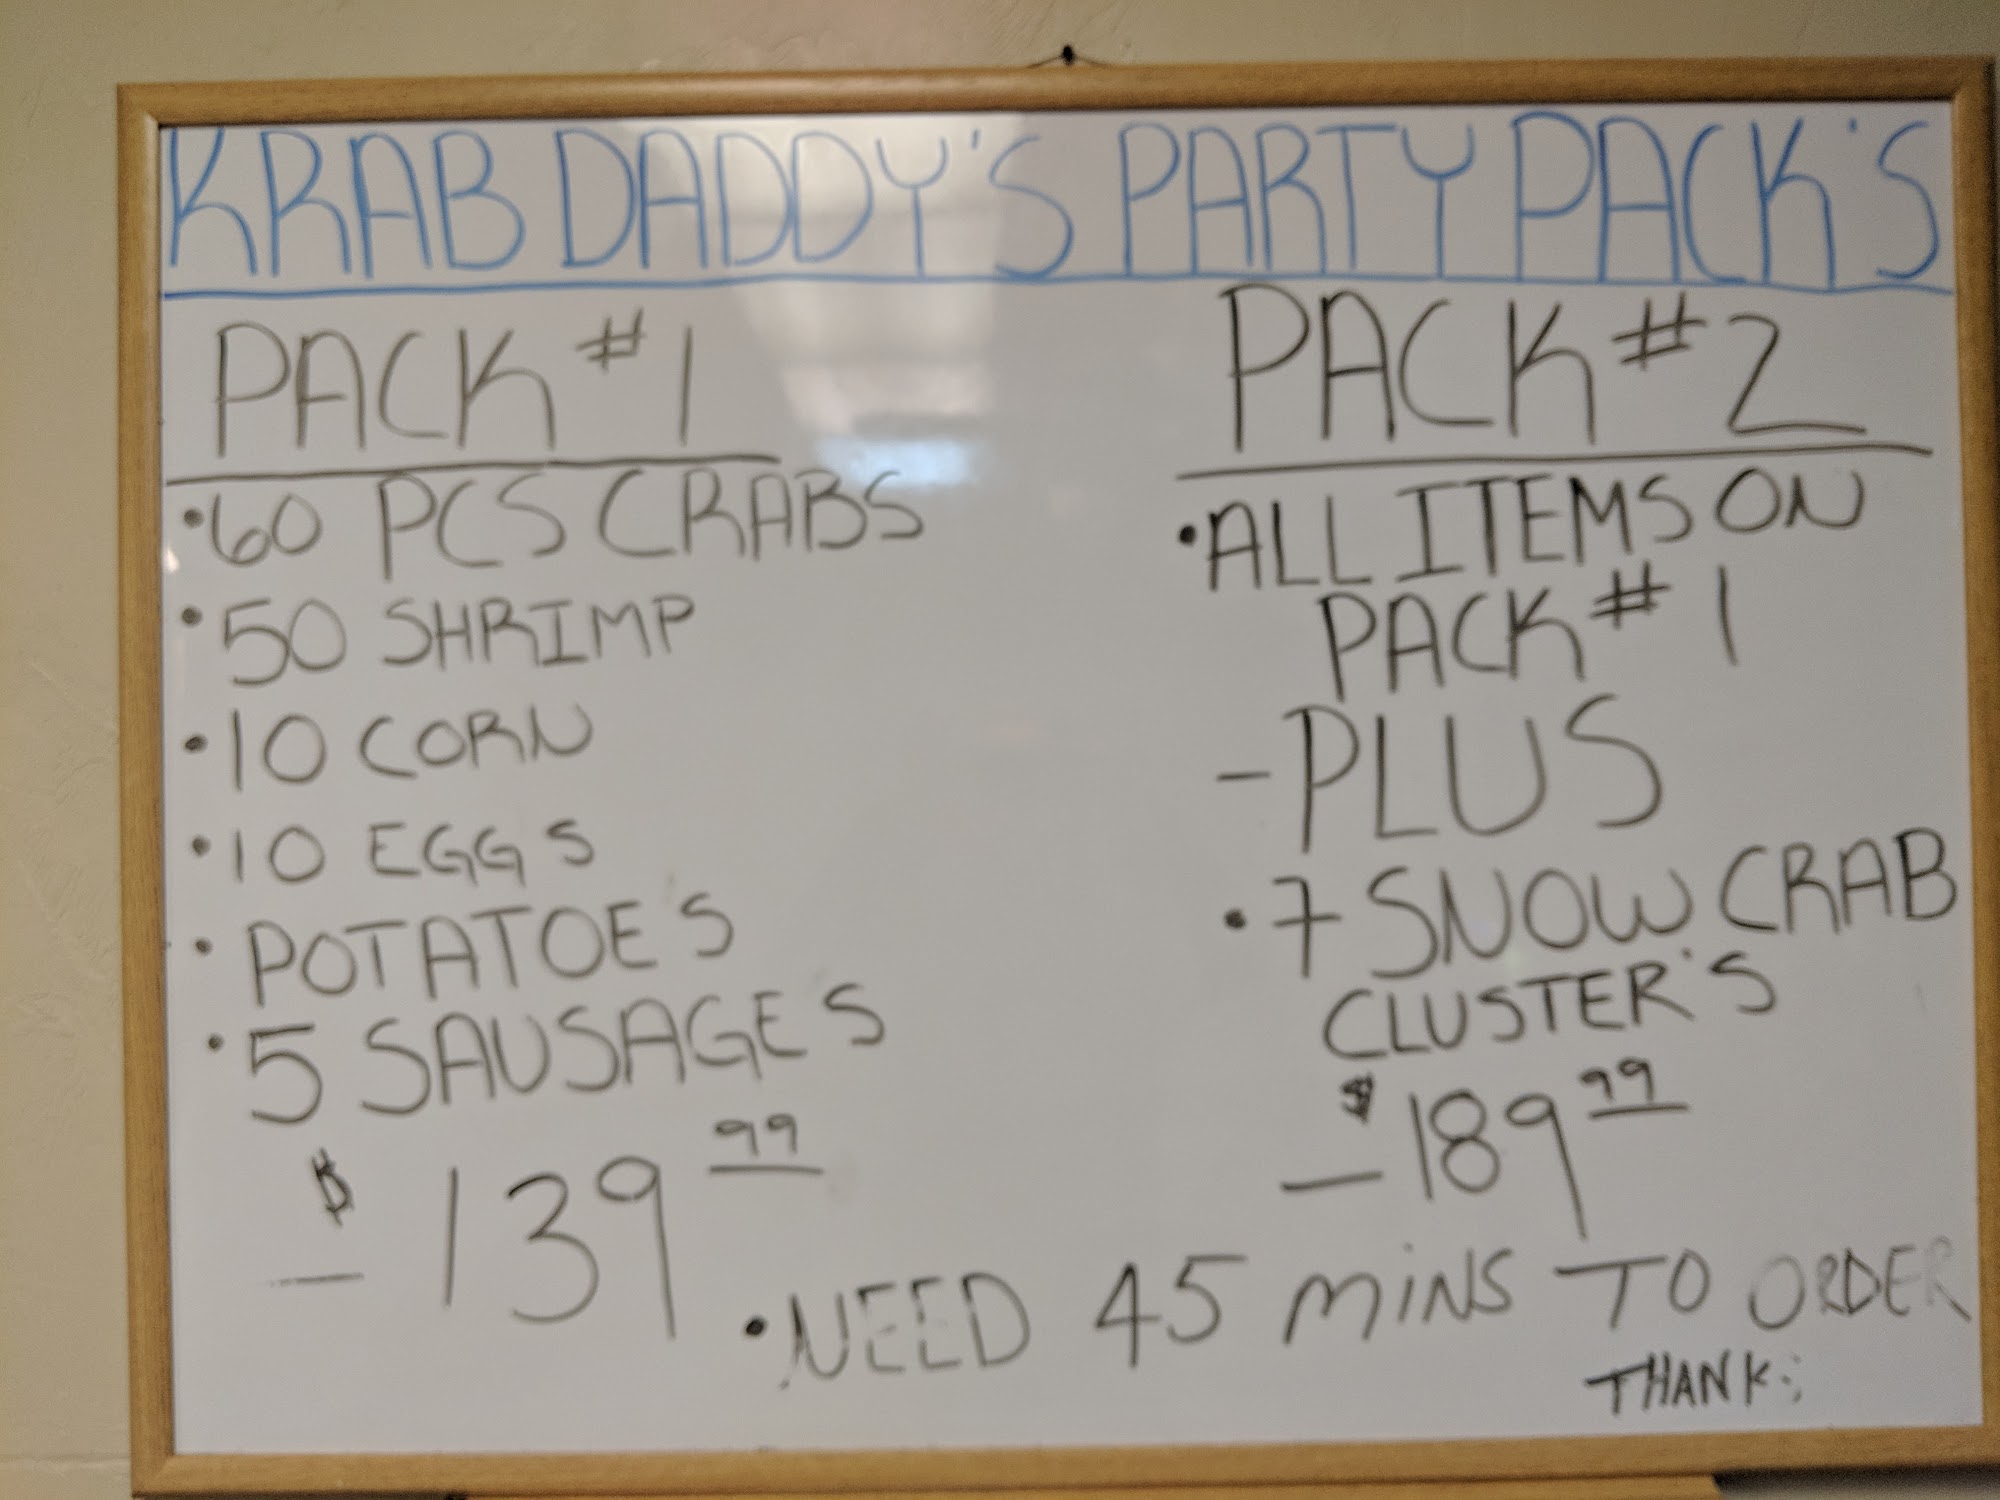 KRAB DADDY'S PARTY PACK'S
PACK #1
• 60 PCS CRABS
• 50 SHRIMP
• 10 CORN
• 10 EGGS
• POTATOES
• 5 SAUSAGES
- $139.99
PACK #2
• ALL ITEMS ON
PACK #1
- PLUS
• 7 SNOW CRAB
CLUSTER'S
- $189.99
• NEED 45 MINS TO ORDER
THANK